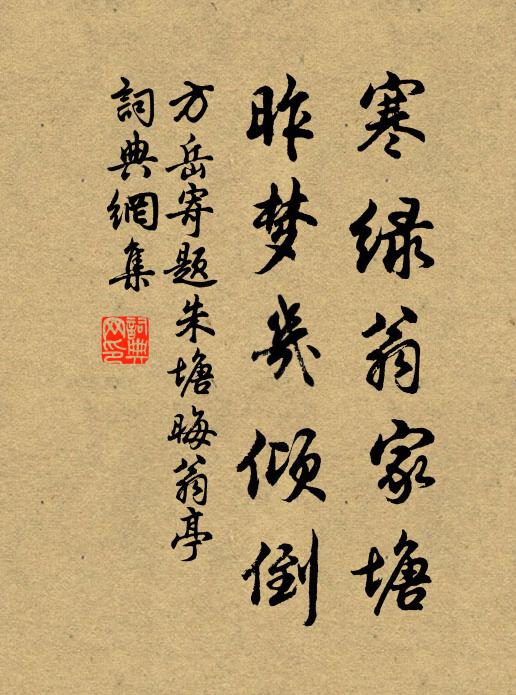 寒绿翁家塘
昨梦几倾倒
方岳寄题朱塘晦翁亭
詞典網集
詞典網印